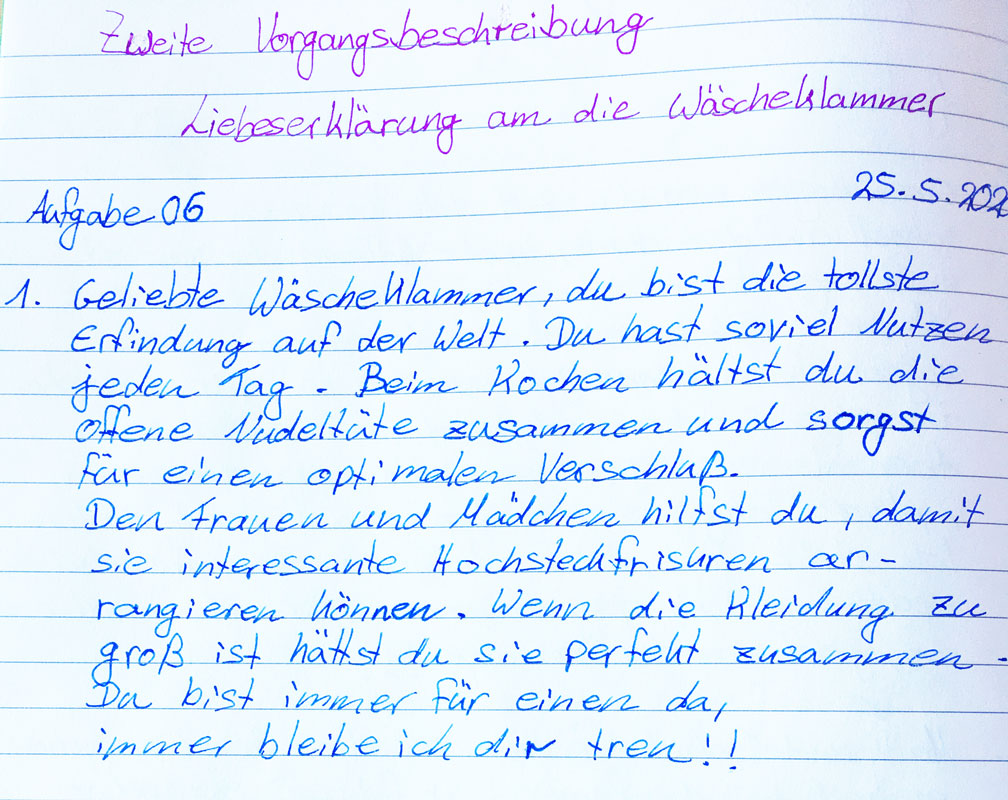 Zweite Vorgangsbeschreibung
Liebeserklärung am die Wäscheklammer
25.5.202
Aufgabe 06
1. Geliebte Wäscheklammer, du bist die tollste
Erfindung auf der Welt. Du hast soviel Nutzen
jeden Tag. Beim Kochen hältst du die
offene Nudeltüte zusammen und sorgst
für einen optimalen Verschluß.
Den Frauen und Mädchen hilfst du, damit
sie interessante Hochsteckfrisuren ar-
rangieren können. Wenn die Kleidung zu
groß ist hältst du sie perfekt zusammen.
Du bist immer für einen da,
immer bleibe ich dir treu!!